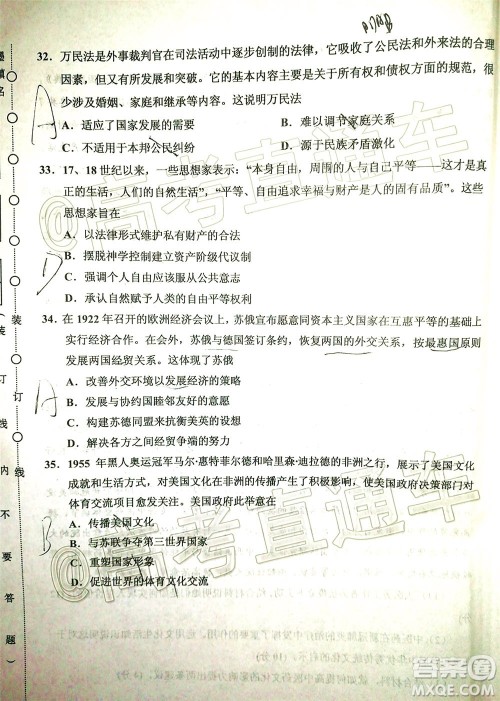 32. 万民法是外事裁判官在司法活动中逐步创制的法律，它吸收了公民法和外来法的合理
因素，但又有所发展和突破。万民法的基本内容是关于所有权和债权方面的规范，很
少涉及婚姻、家庭和继承等内容。这说明万民法
A
A. 适应了国家发展的需要 B. 难以调节家庭关系
C. 不适用于本邦公民纠纷 D. 源于民族矛盾激化
33. 17、18世纪以来，一些思想家表示：“本身自由，周围的人与自己平等——这才是真
正的生活，人们的自然生活”，“平等、自由追求幸福与财产是人的固有品质”。这些
思想家旨在
A. 以法律形式维护私有财产的合法
B. 摆脱神学控制建立资产阶级代议制
D
C. 强调个人自由应该服从公共意志
D. 承认自然赋予人类的自由和平等
34. 在1922年召开的欧洲经济会议上，苏俄宣布愿意同资本主义国家在互惠平等的基础上
实行经济合作。在会外，苏俄与德国签订条约，恢复两国的外交关系，按最惠国原则
发展两国经贸关系。这体现了苏俄
A. 改善外交环境以发展经济的策略
A
B. 发展与协约国睦邻友好的意愿
C. 构建苏德同盟来抗衡美英的设想
D. 解决各方之间经贸争端的努力
35. 1955年黑人奥运冠军马尔·惠特菲尔德和哈里森·迪拉德的非洲之行，展示了美国文化
成就和生活方式，对美国文化在非洲的传播产生了积极影响，促使美国政府决策部门对
体育交流项目愈发关注。美国政府此举意在
B
A. 传播美国文化
B. 与苏联争夺第三世界国家
C. 重塑国家形象
D. 促进世界的体育文化交流
装
订
线
内
不
要
答
题
@高考直通车
@高考直通车
答案圈
MXQE.COM